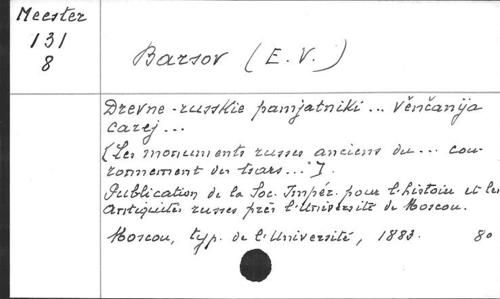 Meester
131
8
Barsov (E.V.)
Drevne-russkie pamjatniki... věnčanija
carej...
[Les monuments russes anciens du... cou-
ronnement des tsars...].
Publication de la Soc. Impér. pour l'histoire et les
Antiquités russes près l'Université de Moscou.
Moscou, typ. de l'Université, 1883. 8o